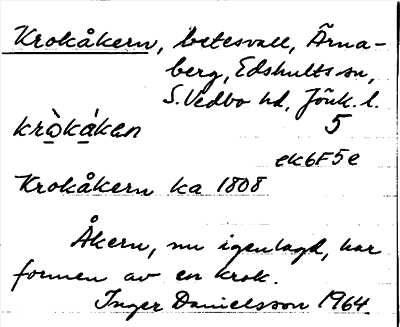 Krokåkern, betesvall, Ärna-
berg, Edshults sn,
S. Vedbo hd, Jönk. l.
kròkákan 5
ek6F5e
Krokåkern ka 1808
Åkern, nu igenlagd, har
formen av en krok.
Inger Danielsson 1964.